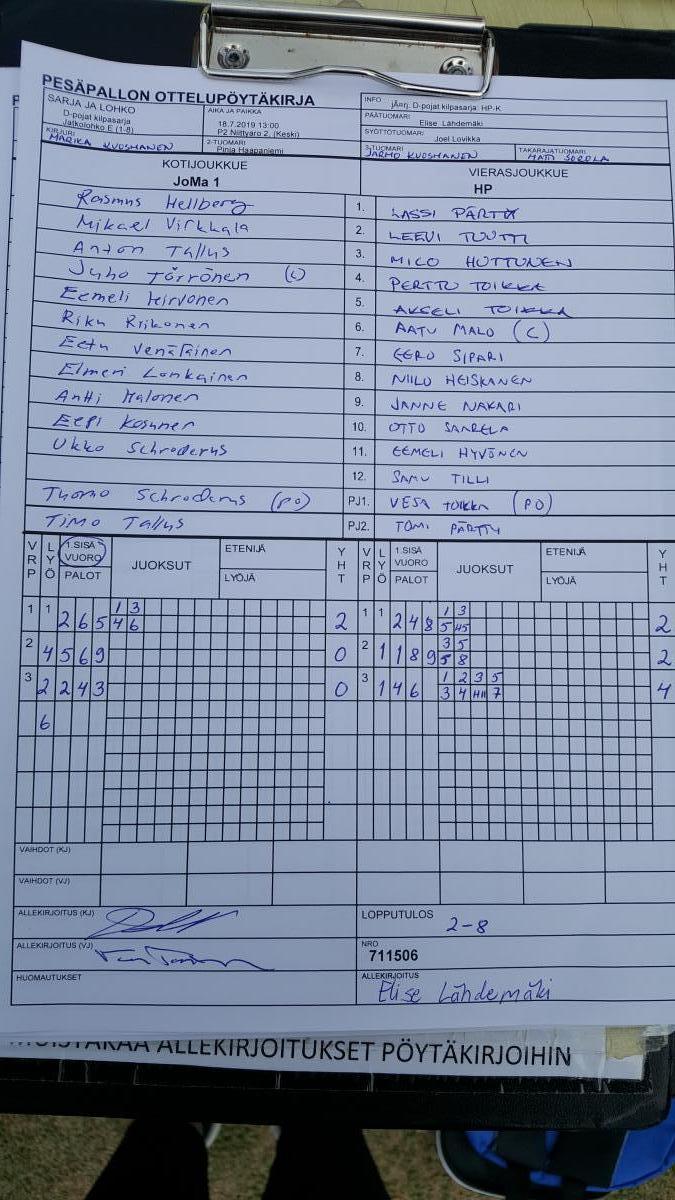 PESÄPALLON OTTELUPÖYTÄKIRJA
SARJA JA LOHKO
D-pojat kilpasarja
Jatkolohko E (1-8)
AIKA JA PAIKKA
18.7.2019 13:00
P2 Niittyaro 2, (Keski)
INFO jÄnrj. D-pojat kilpasarja: HP-K
PÄÄTUOMARI
Elise Lähdemäki
SYÖTTÖTUOMARI
Joel Lovikka
KIRJURI
MARIKA KUOSMANEN
2-TUOMARI
Pinja Haapaniemi
3-TUOMARI
JARMO KUOSMANEN
TAKARAJATUOMARI
MATTI SOROLA
KOTIJOUKKUE
JoMa 1
VIERASJOUKKUE
HP
Rasmus Hellberg 1. LASSI PÄRTTY
Mikael Virkkala 2. LEEVI TUUTTI
Anton Tallus 3. MICO HUTTUNEN
Juho Törrönen (C) 4. PERTTU TOIKKA
Eemeli Hirvonen 5. AKSELI TOIKKA
Riku Riikonen 6. AATU MALO (C)
Eetu Venäläinen 7. EERO SIPARI
Elmeri Lonkainen 8. NIILO HEISKANEN
Antti Malonen 9. JANNE NAKARI
Eepi Kosunen 10. OTTO SAARELA
Ukko Schroderus 11. EEMELI HYVÖNEN
12. SAMU TILLI
Thomo Schroderus (PO) PJ1. VESA TOIKKA (PO)
Timo Tallus PJ2. TOMI PÄRTTY
VRP LYÖ 1.SISÄ VUORO PALOT JUOKSUT ETENIJÄ LYÖJÄ YHT VRP LYÖ 1.SISÄ VUORO PALOT JUOKSUT ETENIJÄ LYÖJÄ YHT
1 3 1 3
1 1 2 6 5 4 6 2 1 1 2 4 8 5 45 2
3 5
2 4 5 6 9 0 2 1 1 8 9 5 8 2
1 2 3 5
3 2 2 4 3 0 3 1 4 6 3 4 HII 7 4
6
VAIHDOT (KJ)
VAIHDOT (VJ)
ALLEKIRJOITUS (KJ)
LOPPUTULOS 2-8
ALLEKIRJOITUS (VJ)
NRO
711506
HUOMAUTUKSET
ALLEKIRJOITUS
Elise Lähdemäki
MUISTAKAA ALLEKIRJOITUKSET PÖYTÄKIRJOIHIN